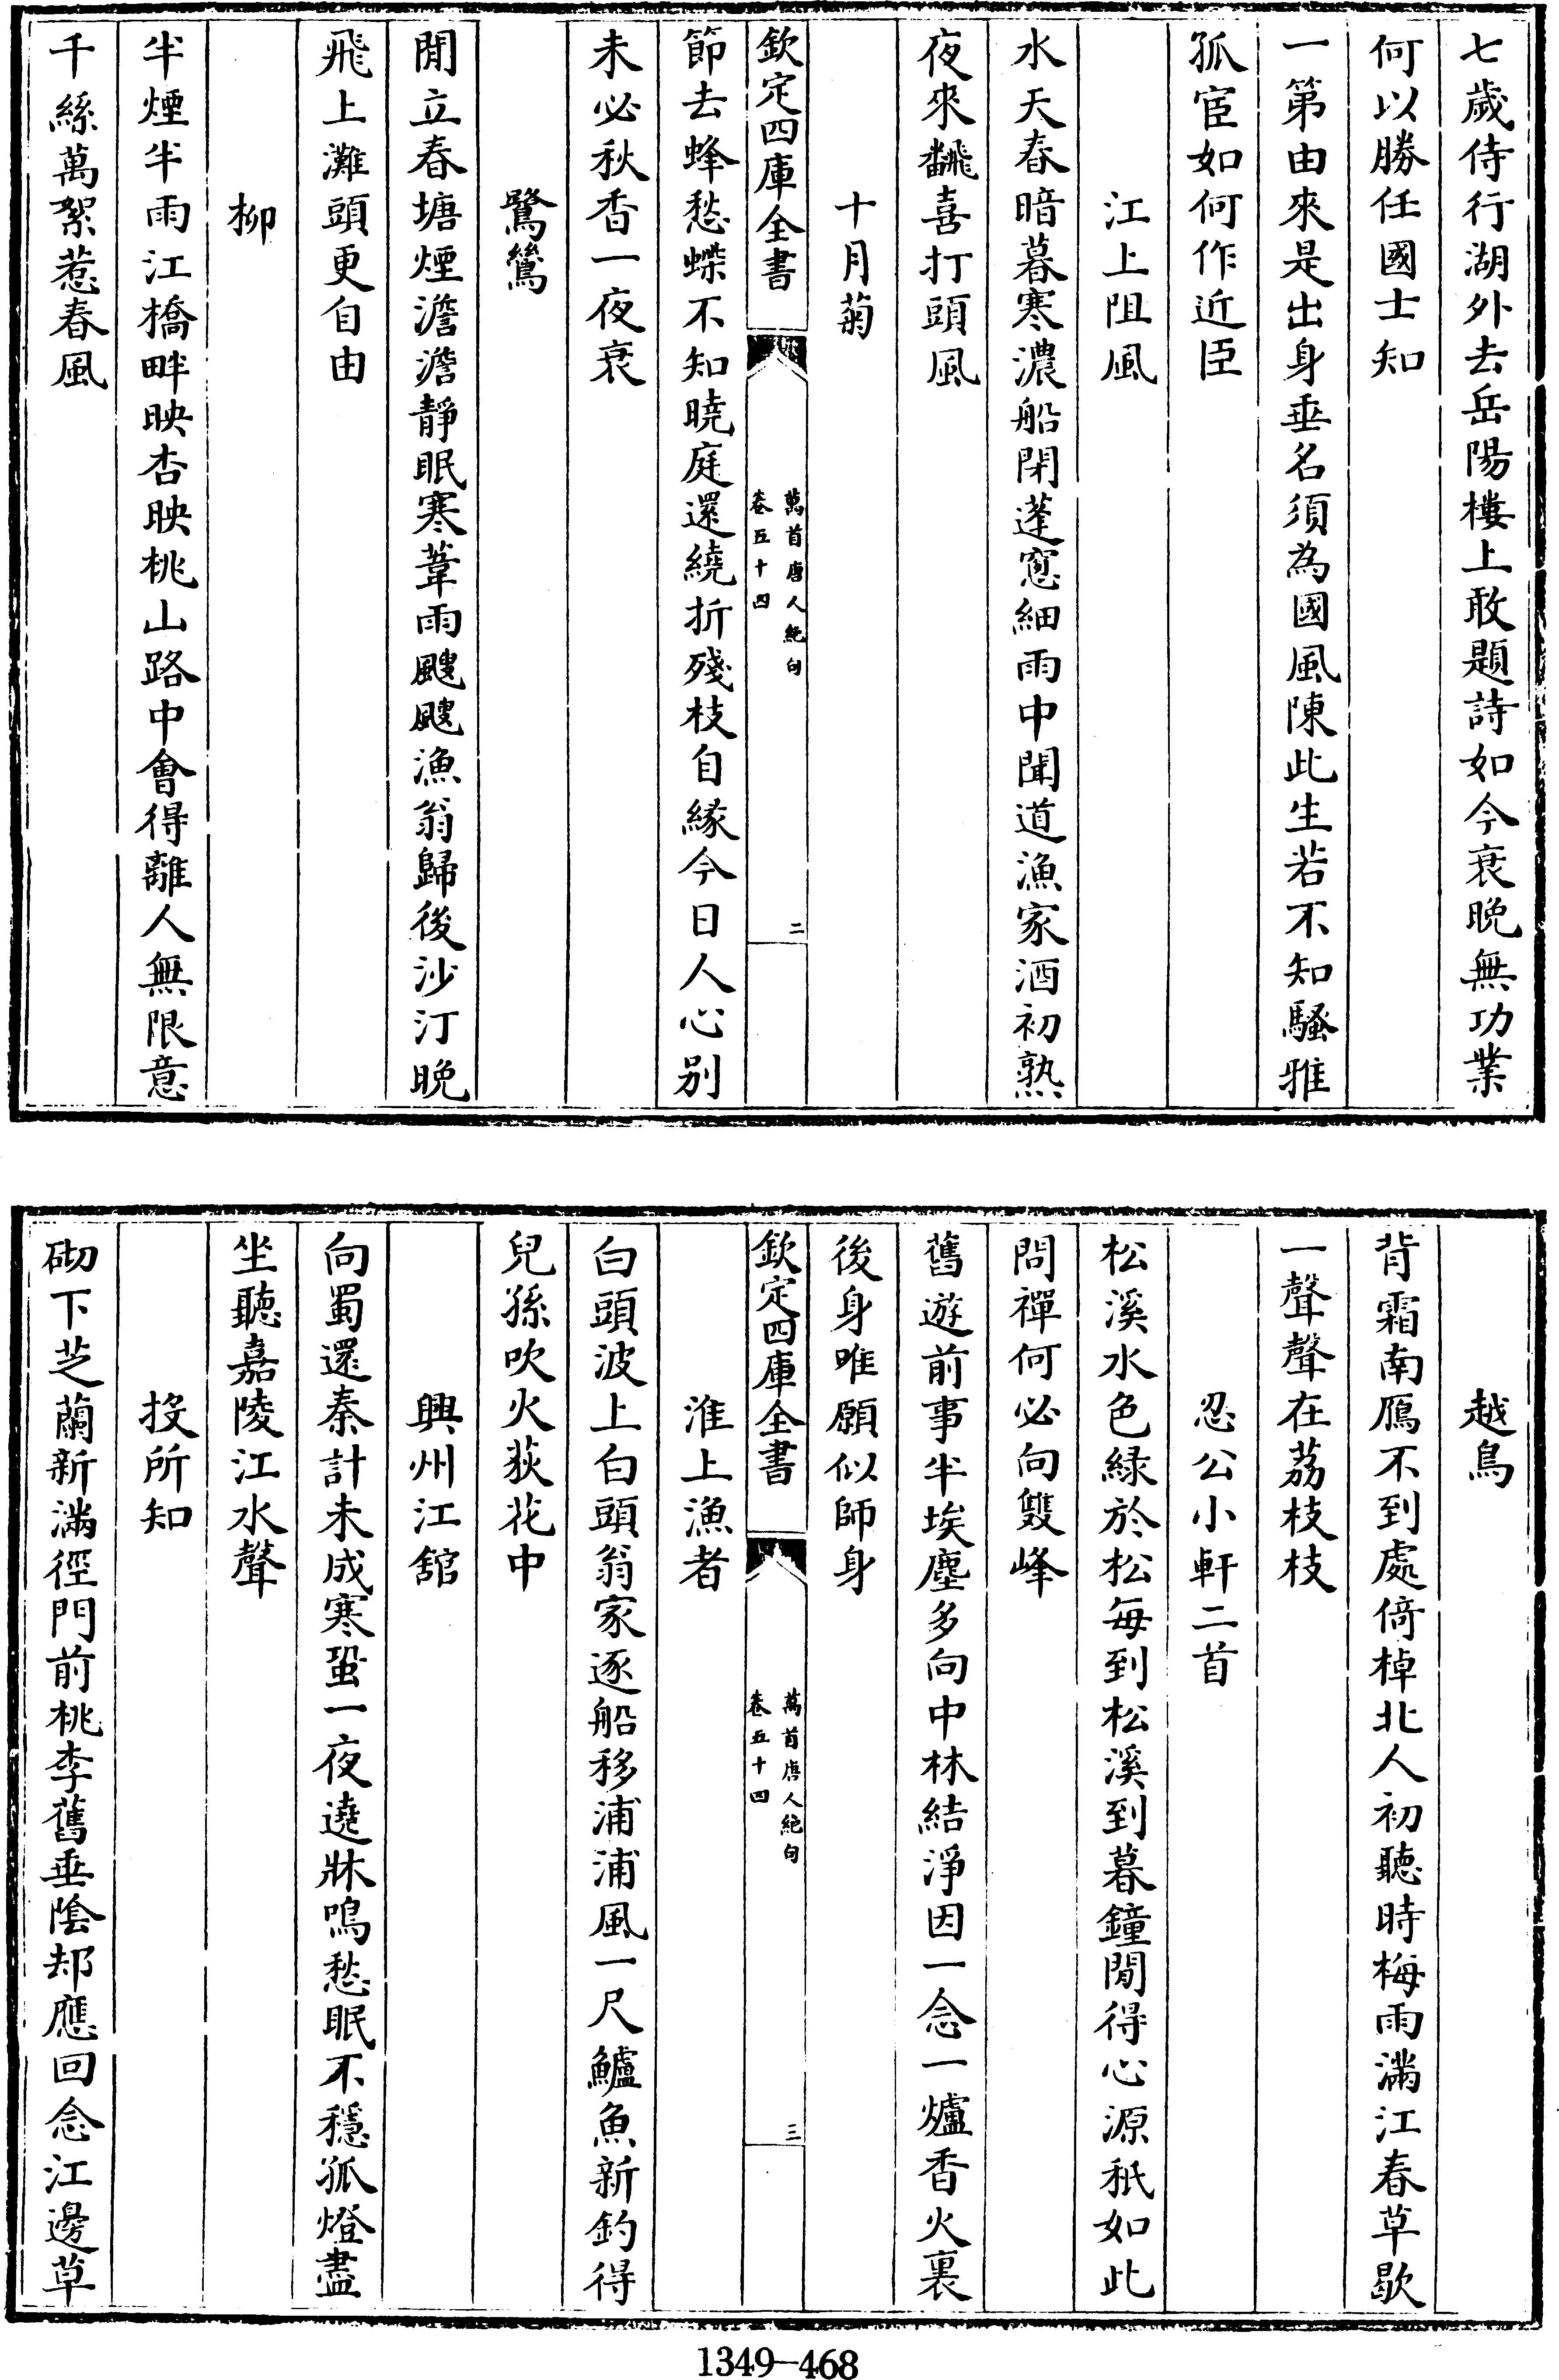 七歲侍行湖外去岳陽樓上敢題詩如今衰晚無功業
何以勝任國士知
一第由來是出身垂名須為國風陳此生若不知騷雅
孤宦如何作近臣
江上阻風
水天春暗暮寒濃船閉蓬窓細雨中聞道漁家酒初熟
夜來飜喜打頭風
十月菊
欽定四庫全書
萬首唐人絶句
卷五十四
二
節去蜂愁蝶不知曉庭還繞折殘枝自緣今日人心別
未必秋香一夜衰
鷺鷥
閒立春塘煙澹澹靜眠寒葦雨颼颼漁翁歸後沙汀晚
飛上灘頭更自由
柳
半煙半雨江橋畔映杏映桃山路中會得離人無限意
千絲萬絮惹春風
越鳥
背霜南鴈不到處倚棹北人初聽時梅雨滿江春草歇
一聲聲在荔枝枝
忍公小軒二首
松溪水色緑於松每到松溪到暮鐘閒得心源秖如此
問禪何必向雙峰
舊遊前事半埃塵多向中林結淨因一念一爐香火裏
後身唯願似師身
欽定四庫全書
萬首唐人絶句
卷五十四
三
淮上漁者
白頭波上白頭翁家逐船移浦浦風一尺鱸魚新釣得
兒孫吹火荻花中
興州江舘
向蜀還秦計未成寒蛩一夜遶牀鳴愁眠不穩孤燈盡
坐聽嘉陵江水聲
投所知
砌下芝蘭新滿徑門前桃李舊垂陰却應回念江邊草
1349-468